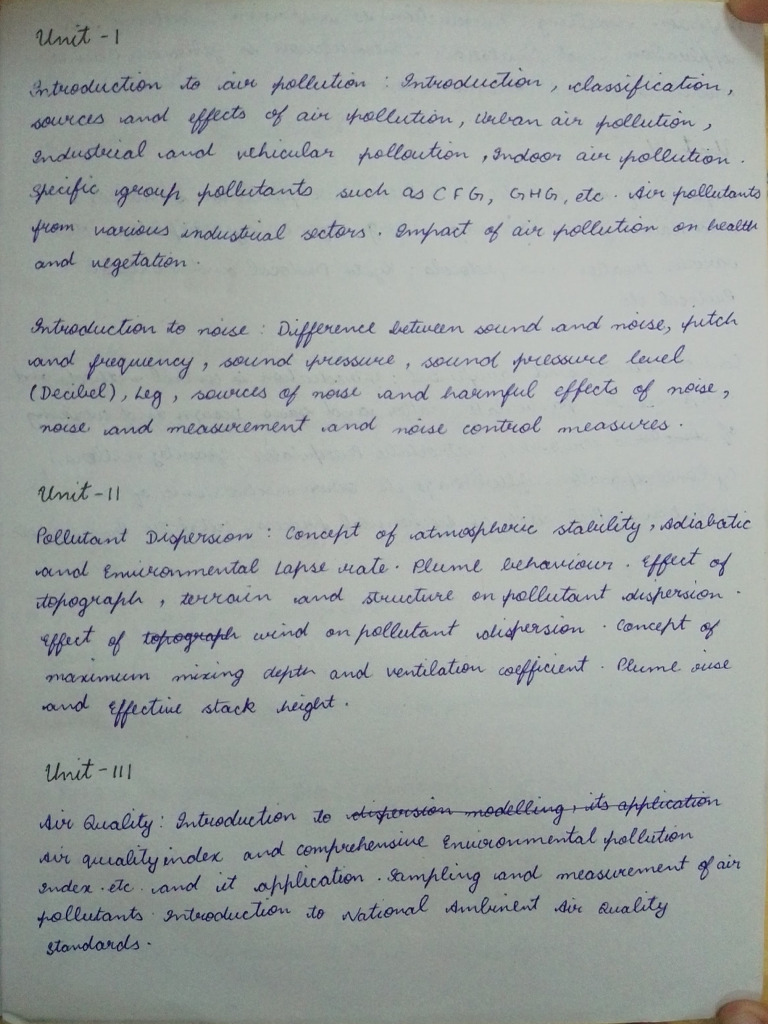 Unit - I
Introduction to air pollution : Introduction, classification,
sources and effects of air pollution, Urban air pollution,
Industrial and vehicular polloution, Indoor air pollution.
Specific group pollutants such as CFG, GHG, etc. Air pollutants
from various industrial sectors. Impact of air pollution on health
and vegetation.
Introduction to noise : Difference between sound and noise, pitch
and frequency, sound pressure, sound pressure level
(Decibel), Leg, sources of noise and harmful effects of noise,
noise and measurement and noise control measures.
Unit - II
Pollutant Dispersion : Concept of atmospheric stability, Adiabatic
and Environmental Lapse rate. Plume behaviour. Effect of
topograph, terrain and structure on pollutant dispersion.
Effect of topograph wind on pollutant dispersion. Concept of
maximum mixing depth and ventilation coefficient. Plume rise
and Effective stack height.
Unit - III
Air Quality : Introduction to dispersion modelling, its application
Air quality index and comprehensive Environmental pollution
Index. etc. and it application. Sampling and measurement of air
pollutants. Introduction to National Ambinent Air Quality
Standards.